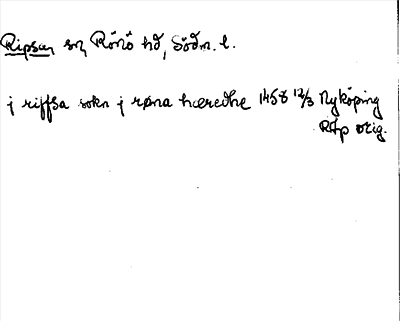 Ripsa sn, Rönö hd, Södm. l.
j riffsa sokn j røna hæredhe 1458 12/3 Nyköping
RAp orig.